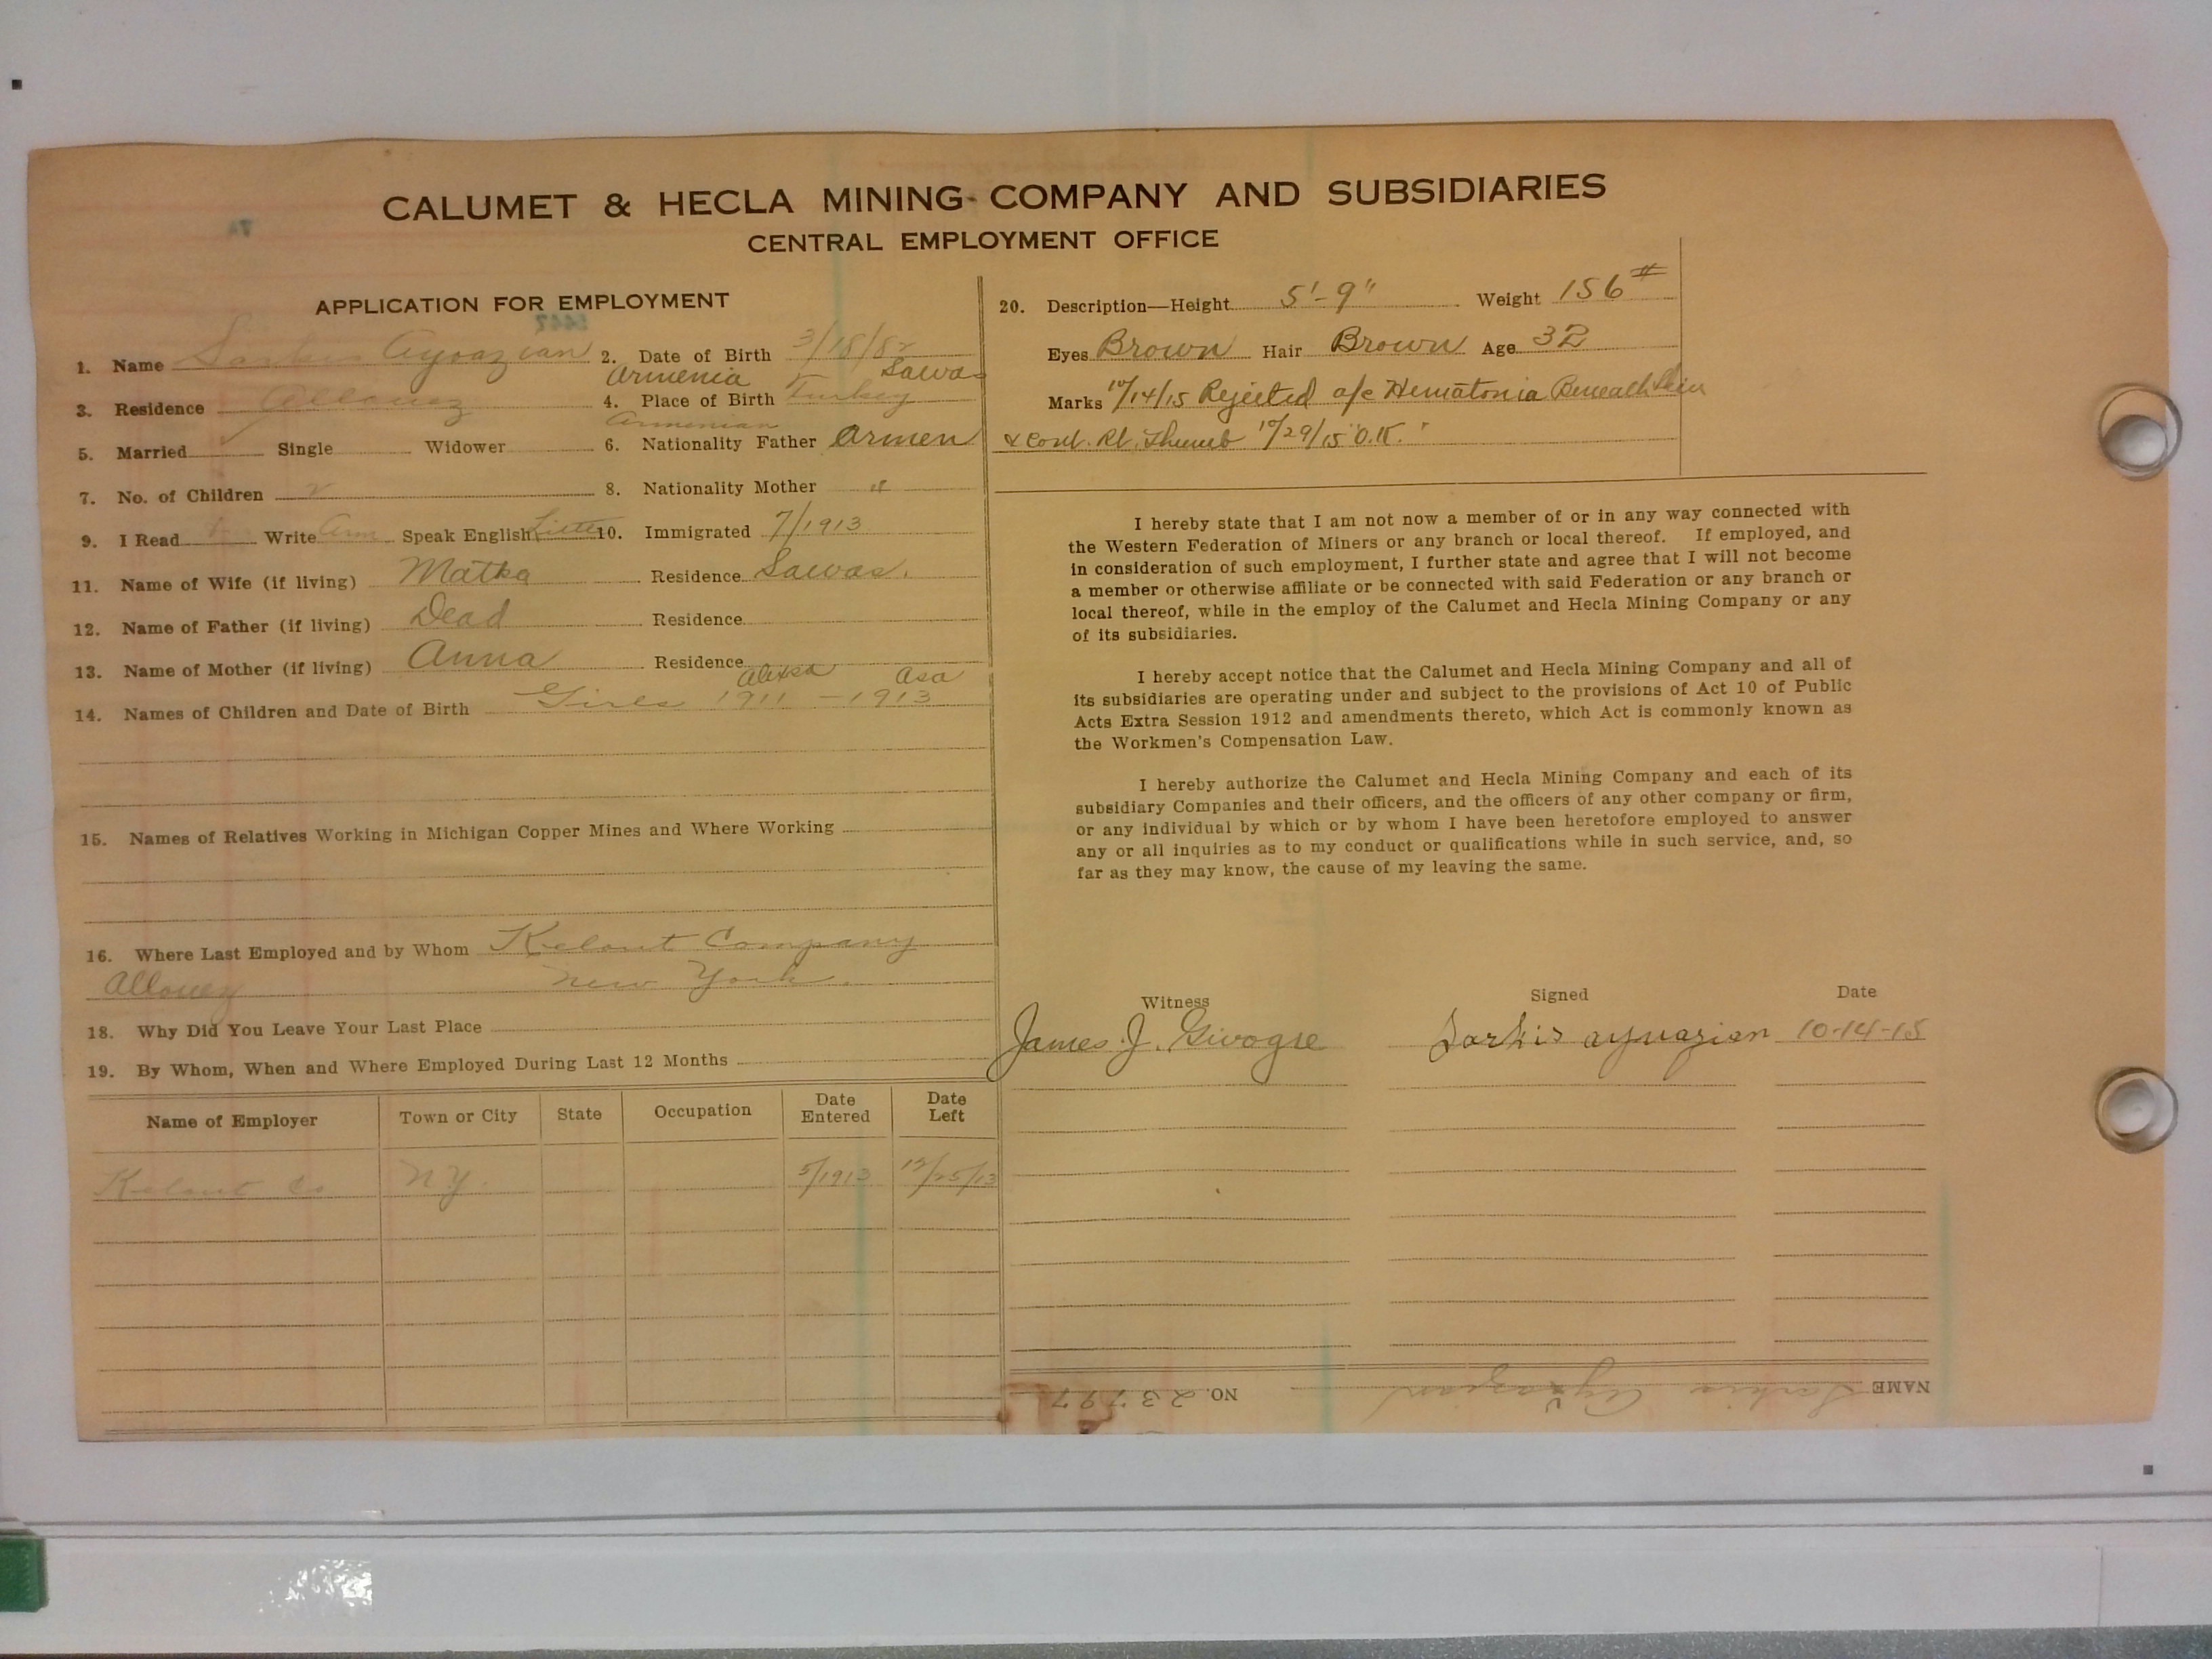 CALUMET & HECLA MINING COMPANY AND SUBSIDIARIES
CENTRAL EMPLOYMENT OFFICE
APPLICATION FOR EMPLOYMENT
1. Name Sarkis Ayvazian 2. Date of Birth 3/18/82
Armenia Sawas
3. Residence Allouez 4. Place of Birth Turkey
Armenian
5. Married ✓ Single Widower 6. Nationality Father Armen
7. No. of Children 2 8. Nationality Mother "
9. I Read Write Arm Speak English Little 10. Immigrated 7/1913
11. Name of Wife (if living) Matka Residence Sawas.
12. Name of Father (if living) Dead Residence
13. Name of Mother (if living) Anna Residence
Asa
14. Names of Children and Date of Birth Girls 1911 - 1913
15. Names of Relatives Working in Michigan Copper Mines and Where Working
16. Where Last Employed and by Whom Company
Allouez New York.
18. Why Did You Leave Your Last Place
19. By Whom, When and Where Employed During Last 12 Months
Name of Employer Town or City State Occupation Date Entered Date Left
Co NY. 5/1913 12/25/13
20. Description—Height 5'-9" Weight 156#
Eyes Brown Hair Brown Age 32
Marks 10/14/15 Rejected a/c Hematonia Beneath Skin
& Cont. Rt. Thumb 10/29/15 "O.K."
I hereby state that I am not now a member of or in any way connected with
the Western Federation of Miners or any branch or local thereof. If employed, and
in consideration of such employment, I further state and agree that I will not become
a member or otherwise affiliate or be connected with said Federation or any branch or
local thereof, while in the employ of the Calumet and Hecla Mining Company or any
of its subsidiaries.
I hereby accept notice that the Calumet and Hecla Mining Company and all of
its subsidiaries are operating under and subject to the provisions of Act 10 of Public
Acts Extra Session 1912 and amendments thereto, which Act is commonly known as
the Workmen's Compensation Law.
I hereby authorize the Calumet and Hecla Mining Company and each of its
subsidiary Companies and their officers, and the officers of any other company or firm,
or any individual by which or by whom I have been heretofore employed to answer
any or all inquiries as to my conduct or qualifications while in such service, and, so
far as they may know, the cause of my leaving the same.
Witness Signed Date
James J. Sarkis ayvazian 10-14-15
NAME Sarkis Ayvazian NO. 23797